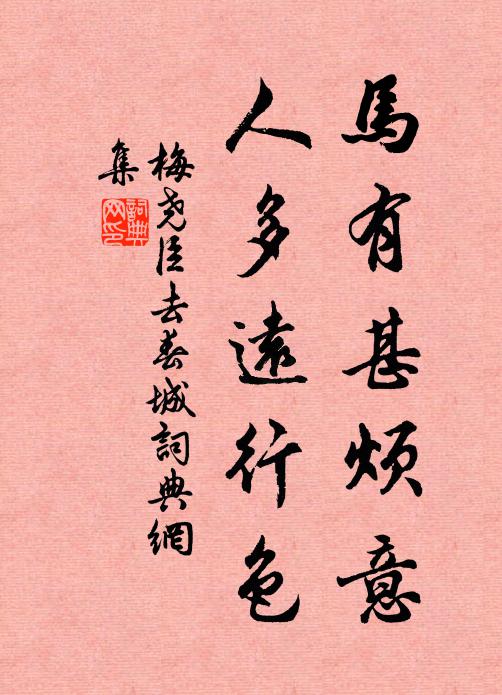 馬有甚煩意
人多遠行色
梅堯臣去春城詞典網
集
詞典
网印